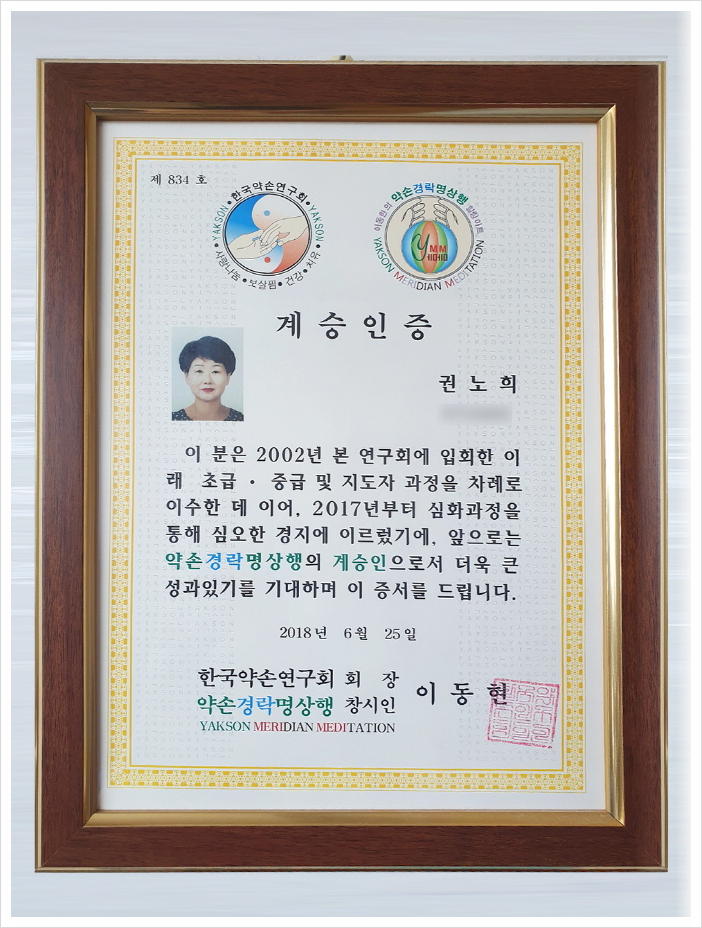 제 834 호
• 한국약손연구회 •
YAKSON
YAKSON
• 사랑나눔 • 보살핌 • 건강 • 치유 •
이동현의 약손경락명상행 힐링아트
YAKSON MERIDIAN MEDITATION
YMM
계승인증
권노희
이 분은 2002년 본 연구회에 입회한 이
래 초급 · 중급 및 지도자 과정을 차례로
이수한 데 이어, 2017년부터 심화과정을
통해 심오한 경지에 이르렀기에, 앞으로는
약손경락명상행의 계승인으로서 더욱 큰
성과있기를 기대하며 이 증서를 드립니다.
2018년 6월 25일
한국약손연구회 회 장
약손경락명상행 창시인 이동현
YAKSON MERIDIAN MEDITATION